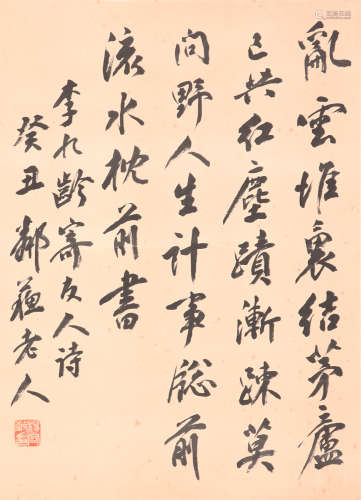 亂雲堆裏結茅廬
已共紅塵蹟漸疎莫
問野人生計事牕前
流水枕前書
李九齡寄友人诗
癸丑鄰蘇老人